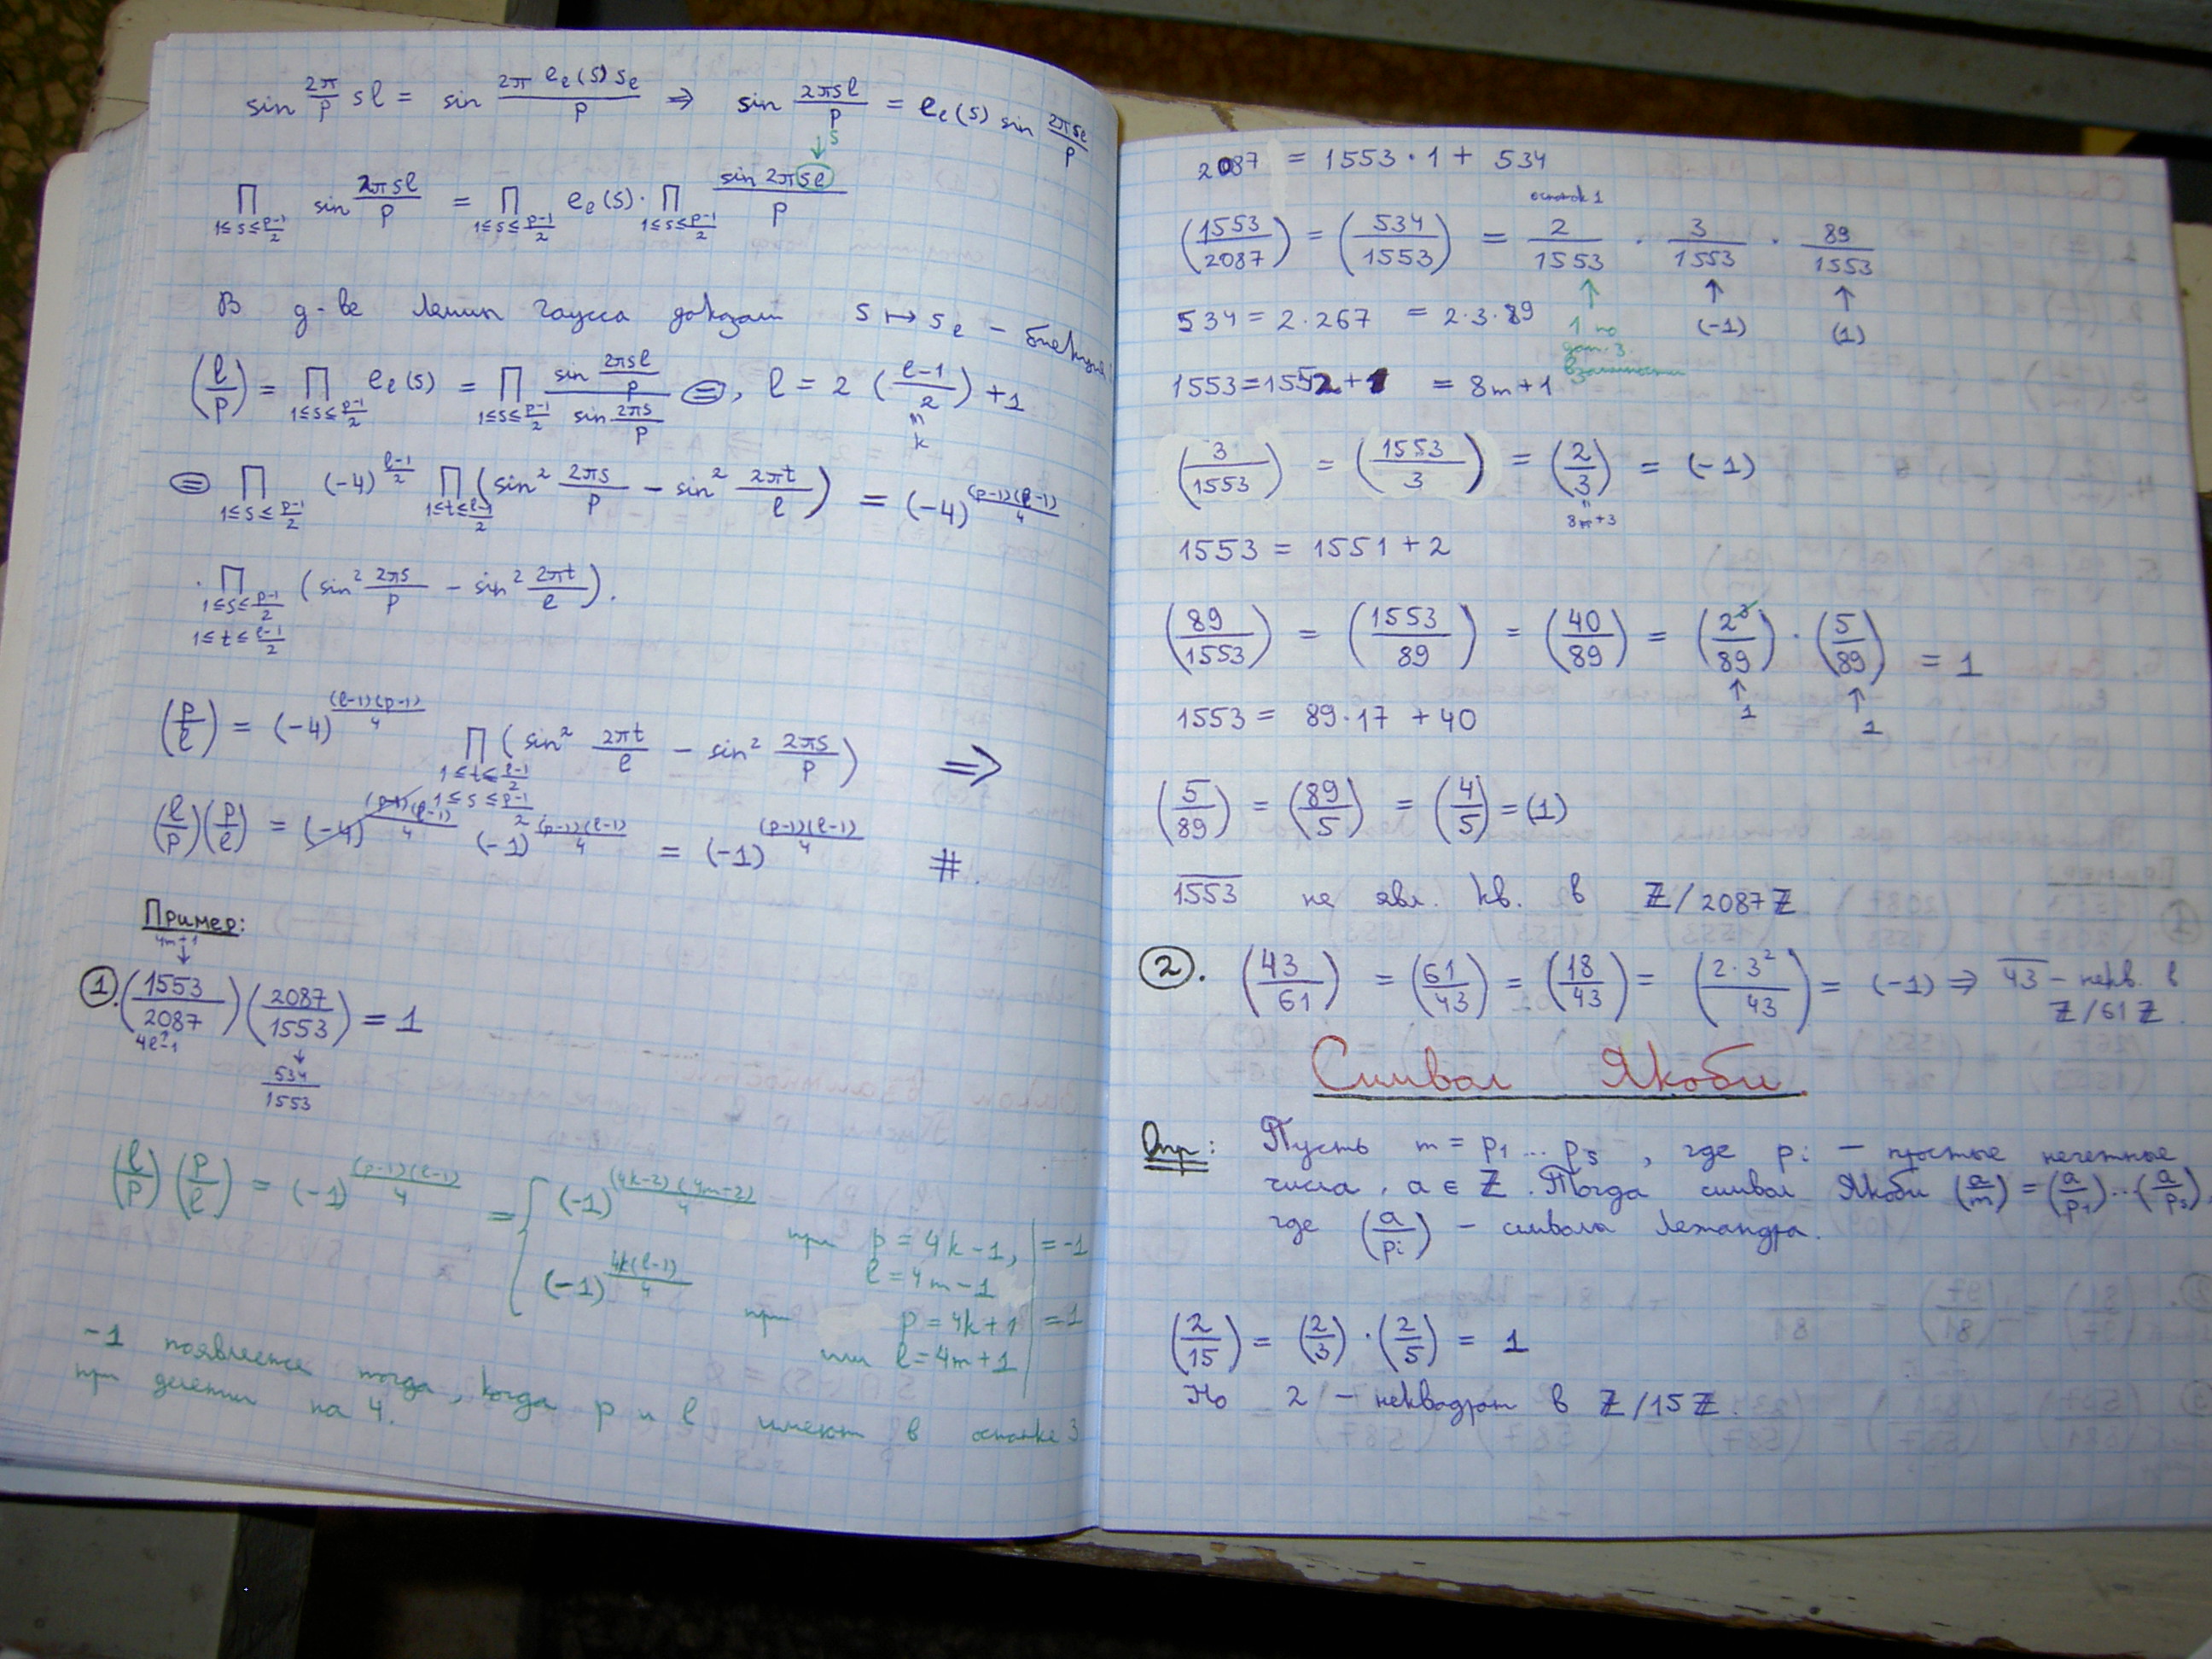 sin 2π/p sl = sin 2π e_l(s) s_l / p ⇒ sin 2πsl/p = e_l(s) sin 2πs_l/p
↓ s
∏_{1≤s≤(p-1)/2} sin 2πsl/p = ∏_{1≤s≤(p-1)/2} e_l(s) · ∏_{1≤s≤(p-1)/2} sin 2πs_l / p
В д-ве леммы Гаусса доказали s ↦ s_l – биекция.
(l/p) = ∏_{1≤s≤(p-1)/2} e_l(s) = ∏_{1≤s≤(p-1)/2} (sin 2πsl/p) / (sin 2πs/p) ⊜, l = 2 ((l-1)/2) + 1
" k
⊜ ∏_{1≤s≤(p-1)/2} (-4)^{(l-1)/2} ∏_{1≤t≤(l-1)/2} (sin² 2πs/p – sin² 2πt/l) = (-4)^{(p-1)(l-1)/4} ·
· ∏_{1≤s≤(p-1)/2, 1≤t≤(l-1)/2} (sin² 2πs/p – sin² 2πt/l).
(p/l) = (-4)^{(l-1)(p-1)/4} ∏_{1≤t≤(l-1)/2, 1≤s≤(p-1)/2} (sin² 2πt/l – sin² 2πs/p) ⇒
(l/p)(p/l) = (-4)^{(p-1)(l-1)/4} (-1)^{(p-1)(l-1)/4} = (-1)^{(p-1)(l-1)/4} #.
Пример:
4m+1
↓
①. (1553/2087)(2087/1553) = 1
4l-1 ↓
534/1553
(l/p)(p/l) = (-1)^{(p-1)(l-1)/4} = { (-1)^{(4k-2)(4m-2)/4} при p = 4k-1, l = 4m-1 | = -1
(-1)^{4k(l-1)/4} при p = 4k+1 или l = 4m+1 | = 1
-1 появляется тогда, когда p и l имеют в остатке 3
при делении на 4.
2087 = 1553·1 + 534
остаток 1
(1553/2087) = (534/1553) = 2/1553 · 3/1553 · 89/1553
↑ ↑ ↑
534 = 2·267 = 2·3·89 1 по (-1) (1)
3.
взаимности
1553 = 1552 + 1 = 8m+1
(3/1553) = (1553/3) = (2/3) = (-1)
" 8m+3
1553 = 1551 + 2
(89/1553) = (1553/89) = (40/89) = (2³/89) · (5/89) = 1
↑ 1 ↑ 1
1553 = 89·17 + 40
(5/89) = (89/5) = (4/5) = (1)
1553 не явл. кв. в Z/2087Z
②. (43/61) = (61/43) = (18/43) = (2·3²/43) = (-1) ⇒ 43 – некв. в
Z/61Z.
Символ Якоби.
Опр: Пусть m = p₁ ... pₛ, где pᵢ – простые нечетные
числа, a ∈ Z. Тогда символ Якоби (a/m) = (a/p₁)...(a/pₛ),
где (a/pᵢ) – символы Лежандра.
(2/15) = (2/3)·(2/5) = 1
Но 2 – неквадрат в Z/15Z.